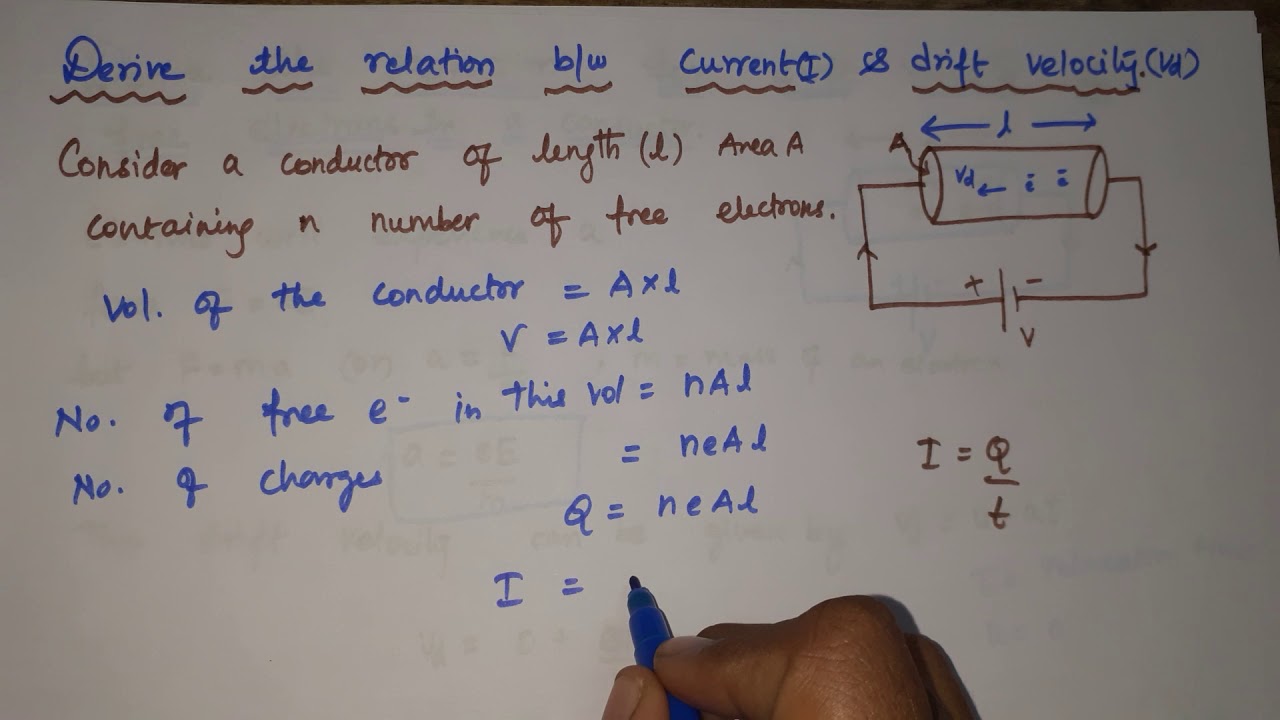 Derive the relation b/w Current(I) & drift velocity.(Vd)
Consider a conductor of length (l) Area A
containing n number of free electrons.
Vol. of the conductor = A×l
V = A×l
No. of free e- in this vol = nAl
No. of charges = neAl
Q = neAl
I =
l
A
Vd ← ē ē
+ -
V
I = Q
t
a = eE
m